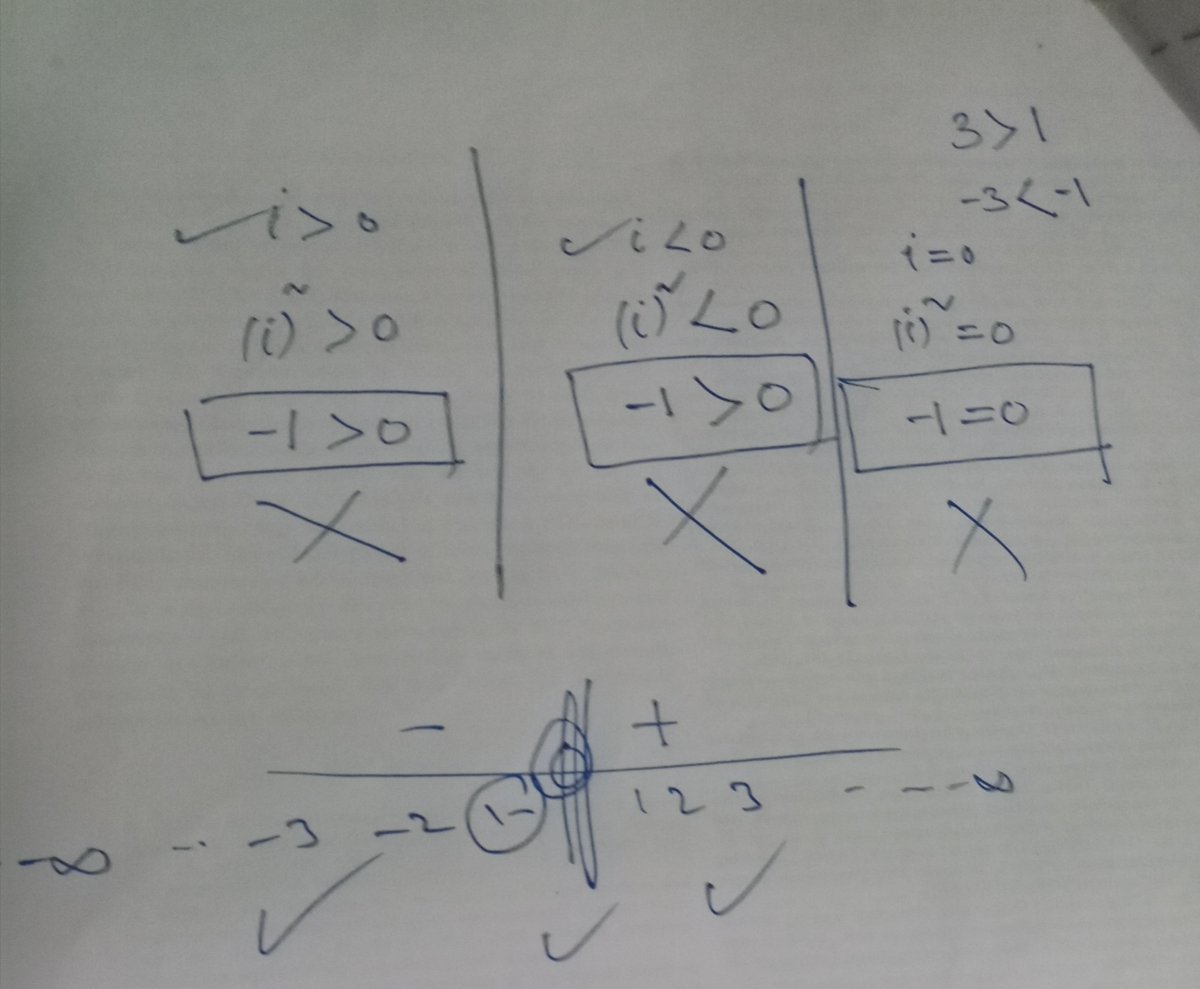 i > 0
(i)² > 0
-1 > 0
i < 0
(i)² < 0
-1 > 0
3 > 1
-3 < -1
i = 0
(i)² = 0
-1 = 0
- +
-∞ -- -3 -2 1- 0 1 2 3 - - - ∞